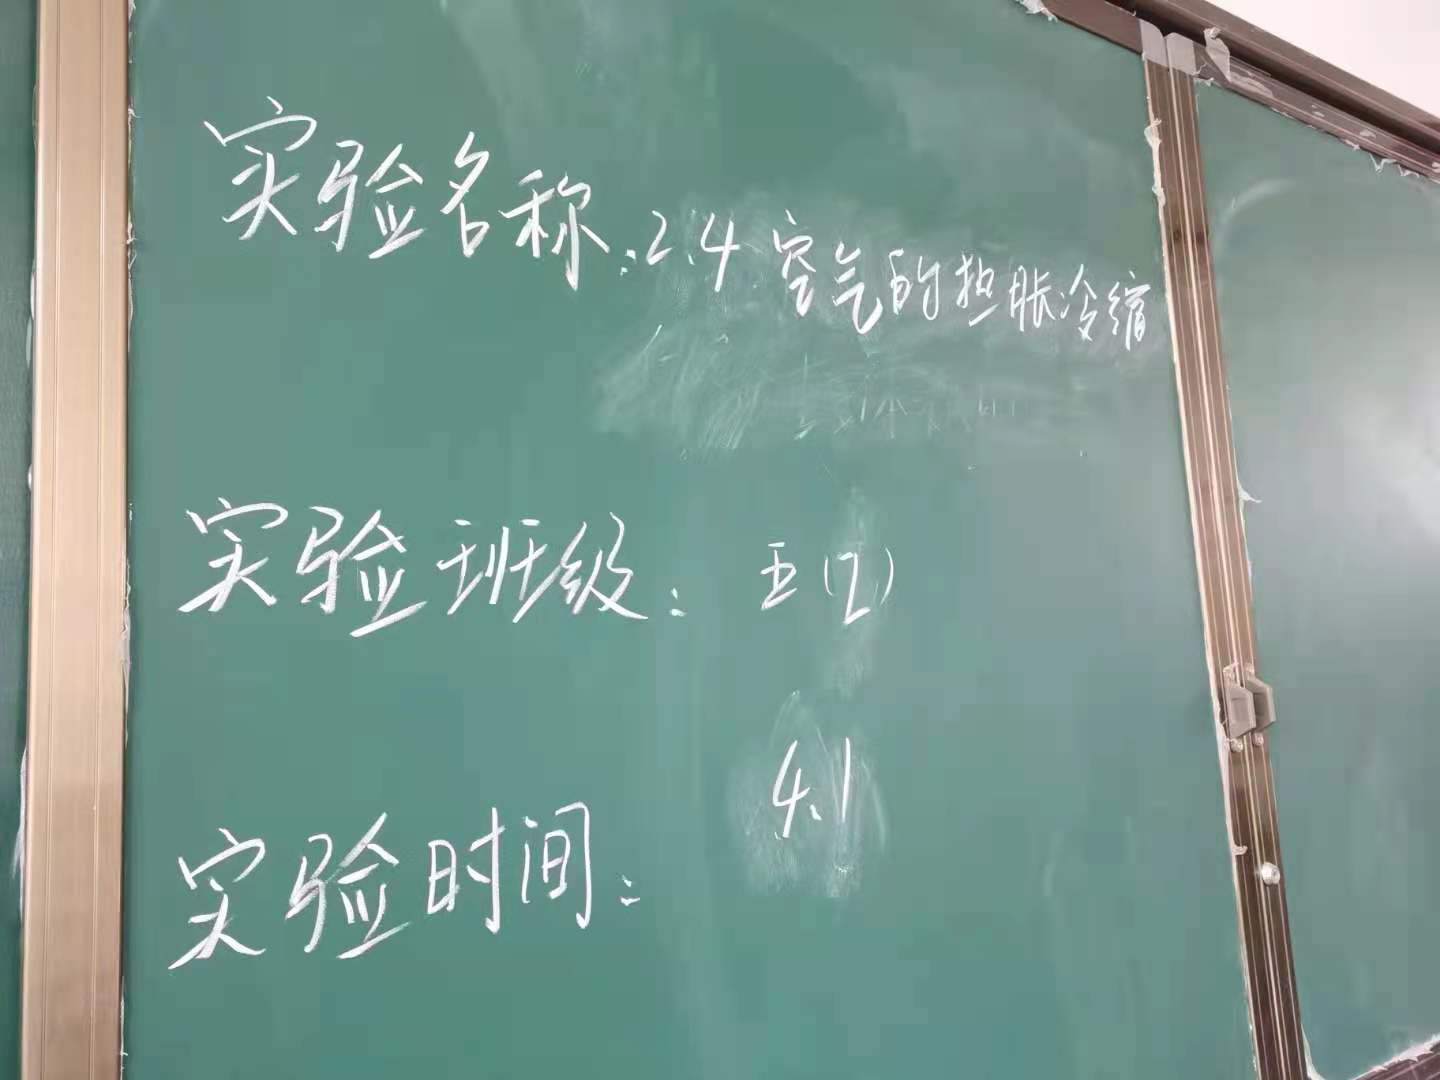 实验名称：2.4 空气的热胀冷缩
实验班级：五(2)
实验时间：4.1